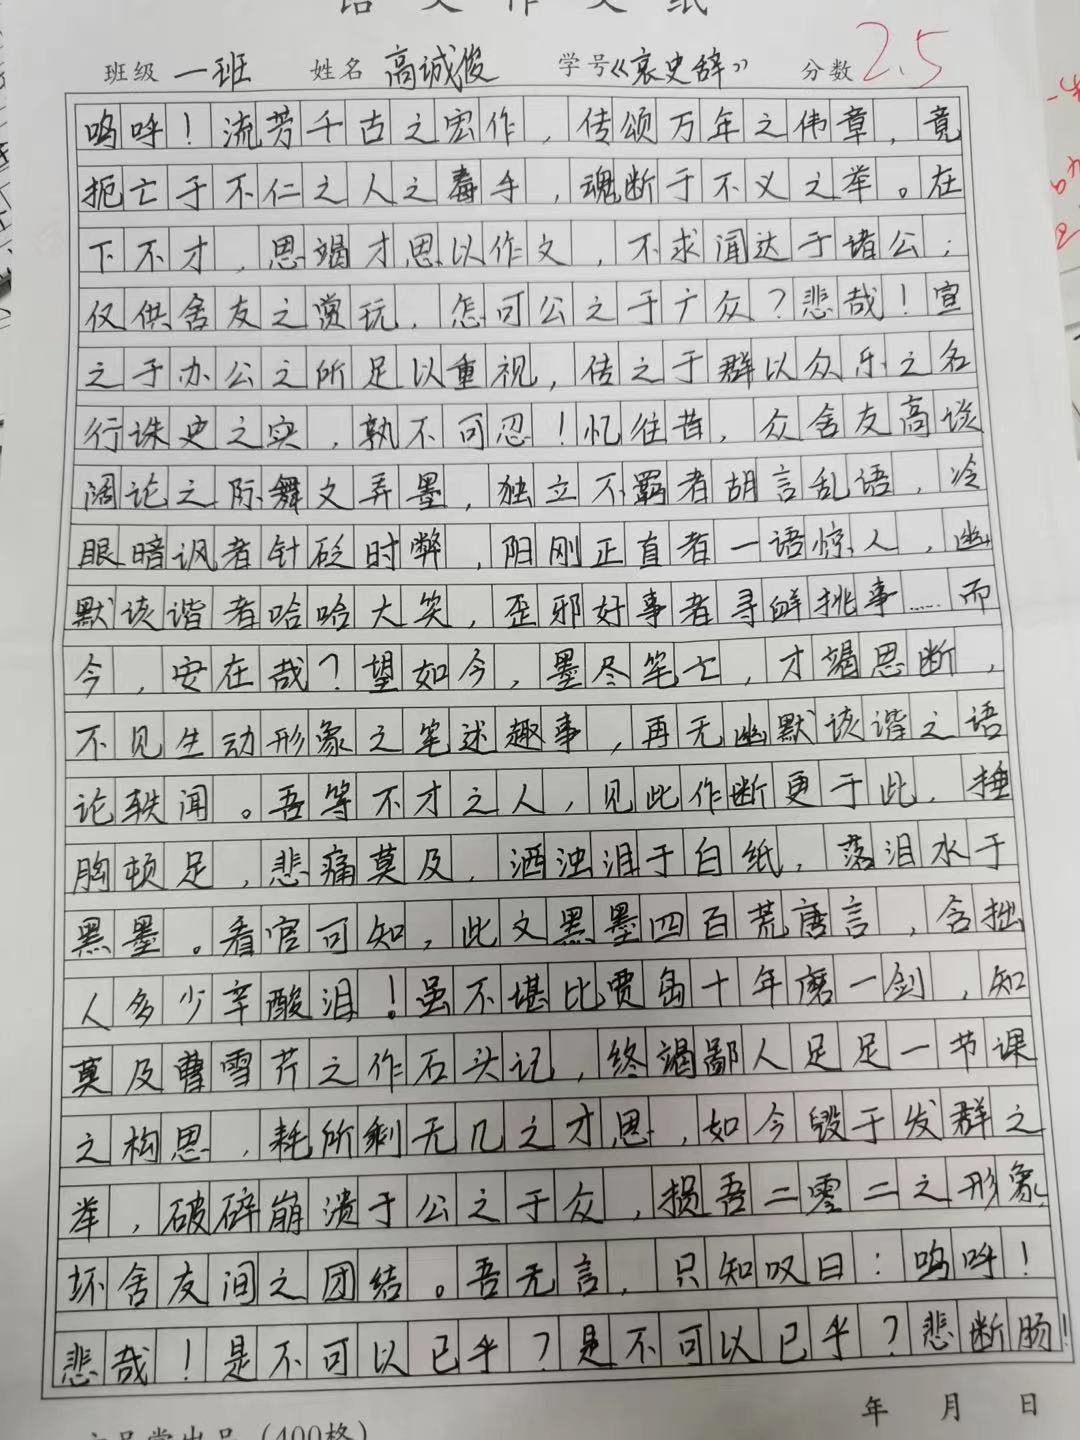 语文作文纸
班级 一班 姓名 高诚俊 学号《哀史辞》 分数 2.5
呜呼！流芳千古之宏作，传颂万年之伟章，竟
扼亡于不仁之人之毒手，魂断于不义之举。在
下不才，思竭才思以作文，不求闻达于诸公；
仅供舍友之赏玩，怎可公之于广众？悲哉！宣
之于办公之所足以重视，传之于群以众乐之名
行诛史之实，孰不可忍！忆往昔，众舍友高谈
阔论之际舞文弄墨，独立不羁者胡言乱语，冷
眼暗讽者针砭时弊，阳刚正直者一语惊人，幽
默该谐者哈哈大笑，歪邪好事者寻衅挑事……而
今，安在哉？望如今，墨尽笔亡，才竭思断，
不见生动形象之笔述趣事，再无幽默该谐之语
论轶闻。吾等不才之人，见此作断更于此，捶
胸顿足，悲痛莫及，洒浊泪于白纸，落泪水于
黑墨。看官可知，此文黑墨四百荒唐言，含拙
人多少辛酸泪！虽不堪比贾岛十年磨一剑，知
莫及曹雪芹之作石头记，终竭鄙人足足一节课
之构思，耗所剩无几之才思，如今毁于发群之
举，破碎崩溃于公之于众，损吾二零二之形象，
坏舍友间之团结。吾无言，只知叹曰：呜呼！
悲哉！是不可以已乎？是不可以已乎？悲断肠！
年 月 日
出品（400格）